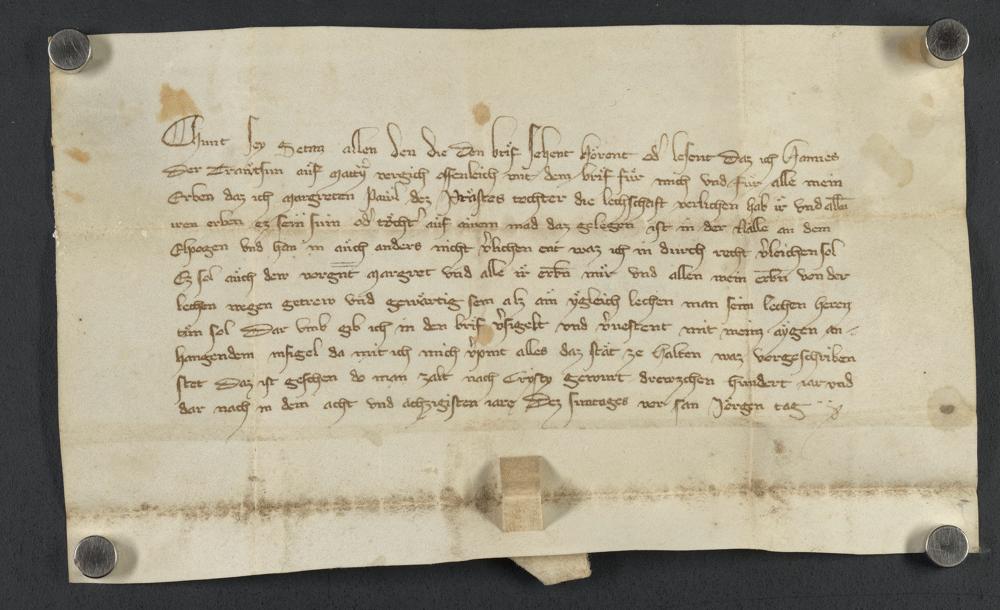 Chunt sey Getan allen den die den brif sehent hörent od' lesent daz ich Hannes
Der Trawtsun auf Matray vergich offenleich mit dem brif für mich vnd für alle mein
Erben daz ich Margreten Paul dez Prästes tochter die lechschaft verlichen hab ir vnd allen
iren erben ez sein sün od' töcht' auf ainem mad daz gelegen ist in der an dem
Elpogen vnd han in auch anders nicht v'lichen ent waz ich in durch recht v'leichen sol
Ez sol auch dew vorgnt Margret vnd alle ir erbn mir vnd allen mein erbn von der
lechen wegen getrew vnd gewärtig sein alz ain ygleich lechen man seim lechen heren
tün sol Dar vmb gib ich in den brif v'sigelt vnd v'uestent mit meim aygen an
hangendem insigel da mit ich mich v'pint alles daz stät ze halten waz vorgeschriben
stet Daz ist geschen do man zalt nach Cristy gewurt drewzehen hundert iar vnd
dar nach in dem acht vnd achzigisten iare Dez suntages vor san Jörgen tag